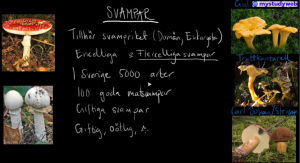 SVAMPAR
Tillhör svampriket (Domän, Eukaryota)
Encelliga & Flercelliga svampar
I Sverige 5000 arter
100 goda matsvampar
Giftiga svampar
Giftig, Oätlig,
mystudyweb
Trattkantarell
Karl Johan/Stensopp